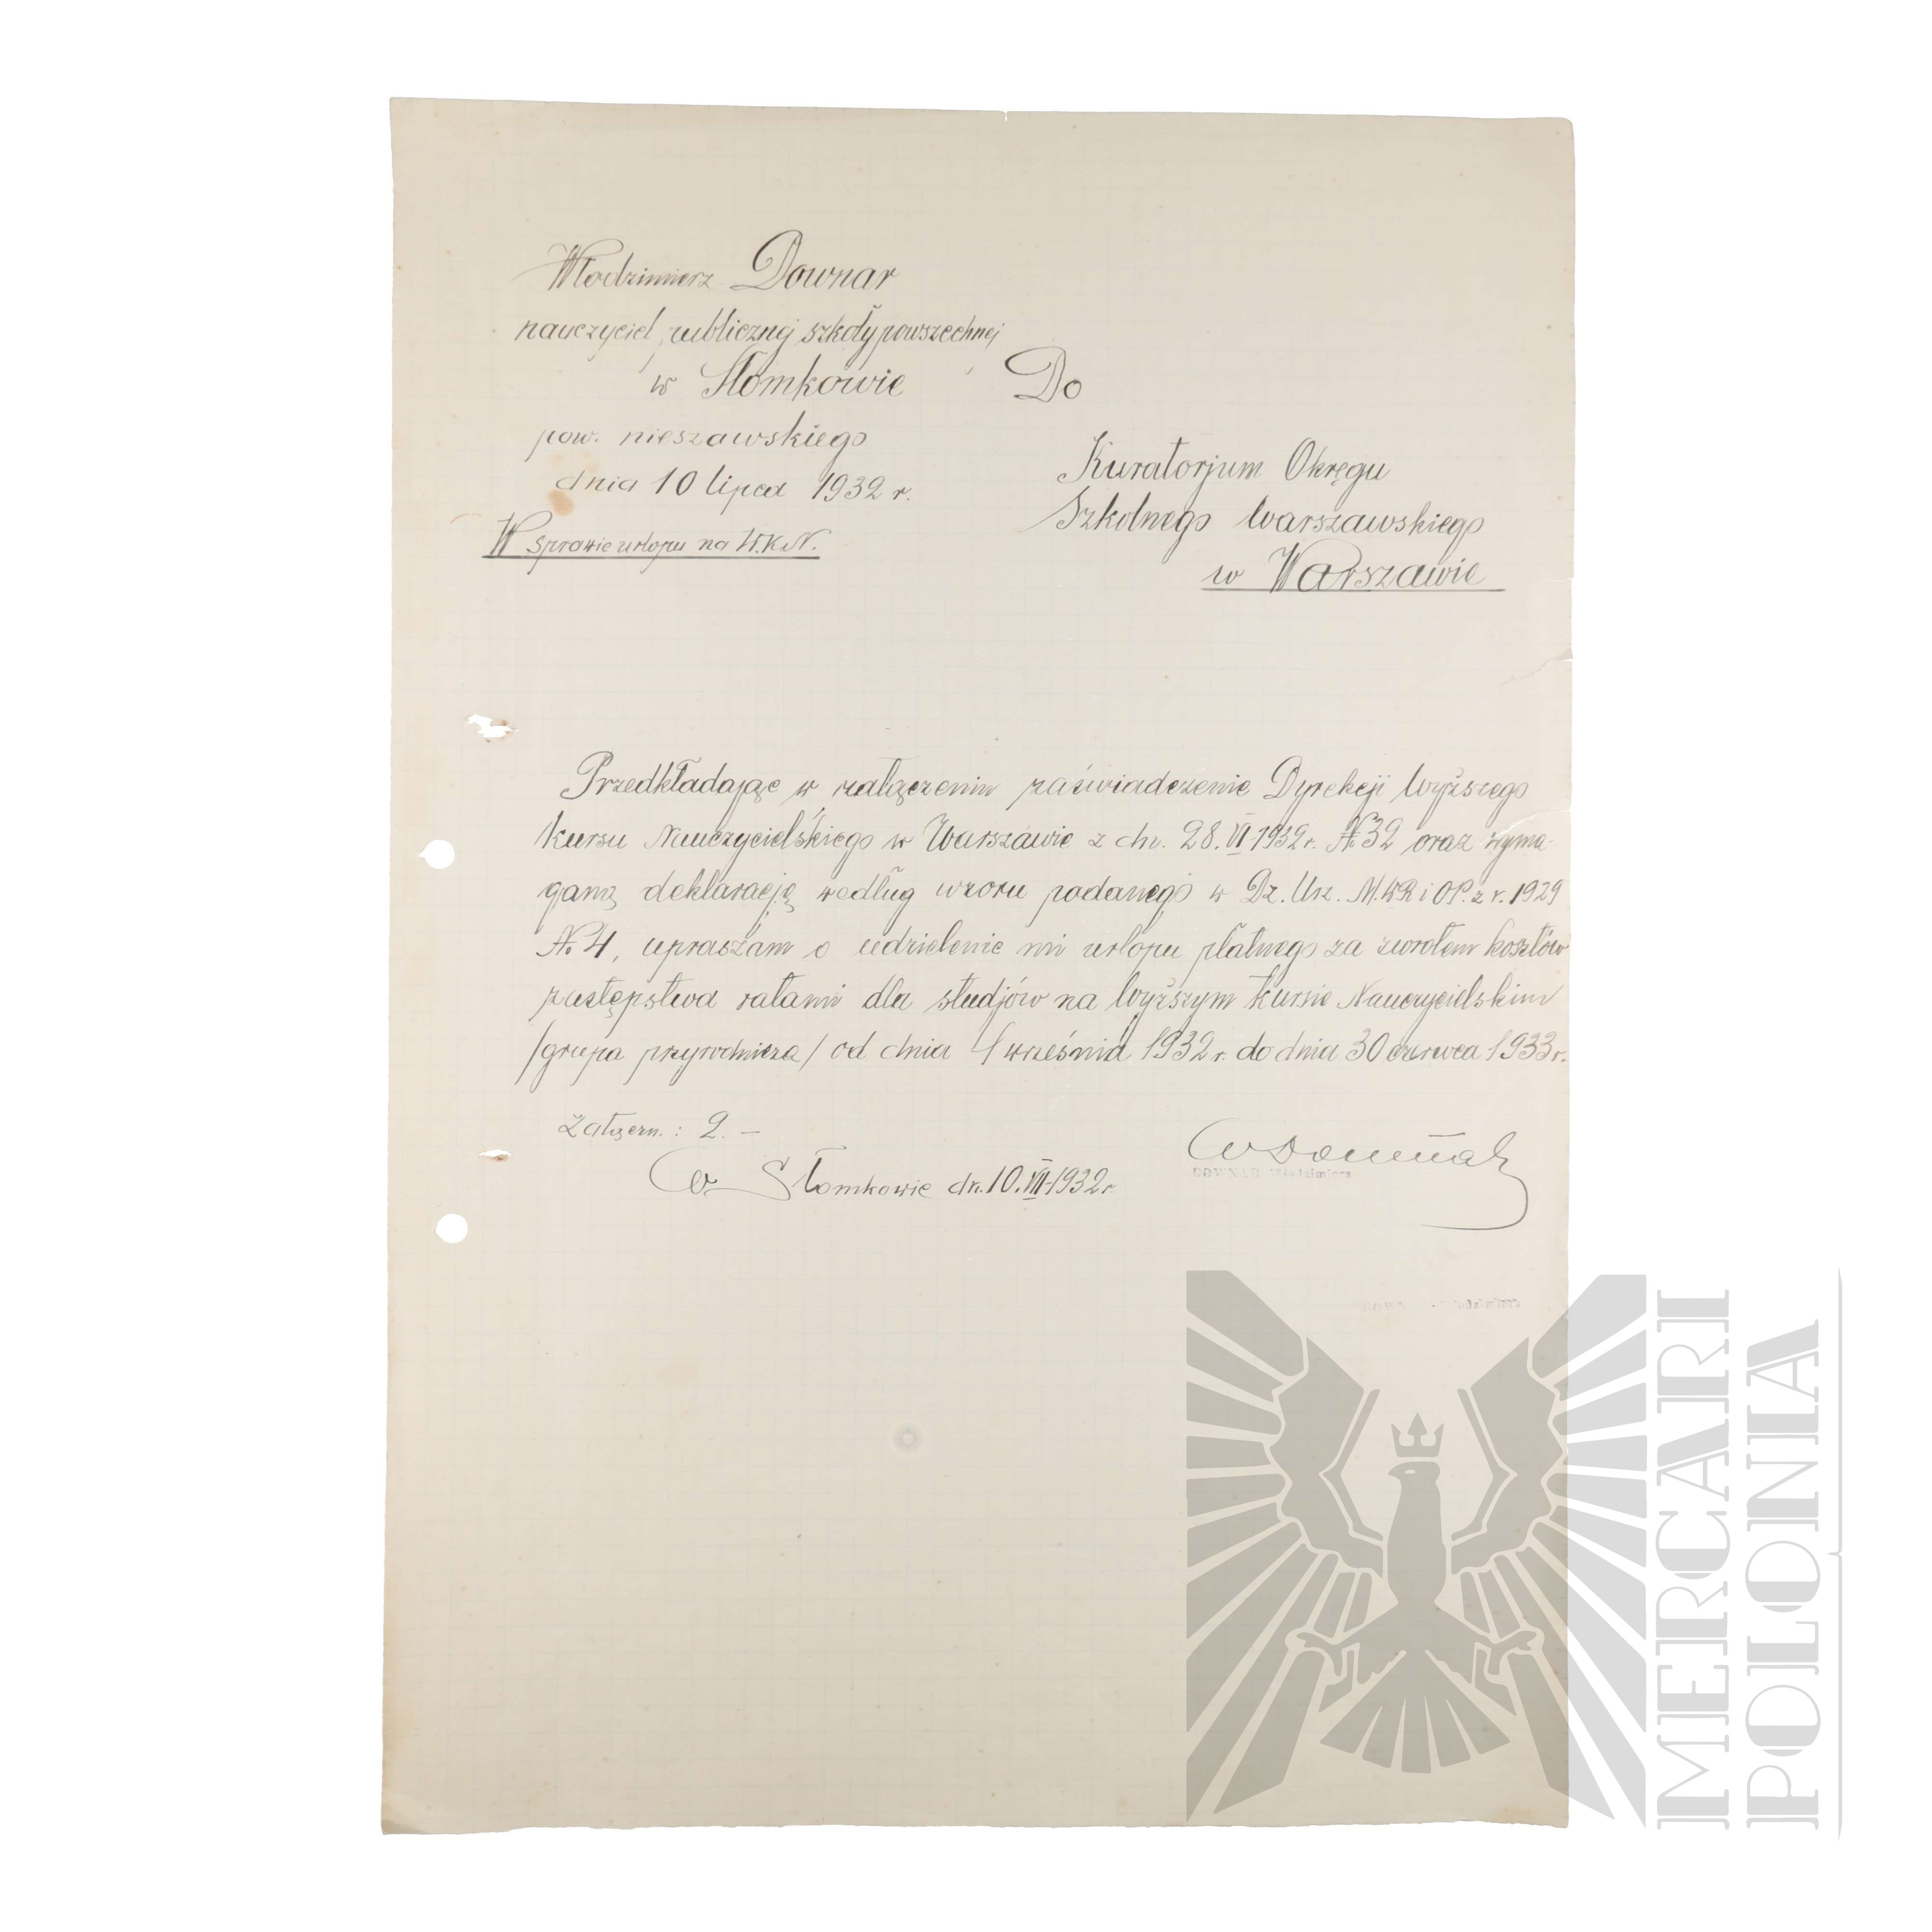 Włodzimierz Downar
nauczyciel publicznej szkoły powszechnej
w Słomkowie
pow. nieszawskiego
dnia 10 lipca 1932 r.
W sprawie urlopu na W.K.N.
Do
Kuratorjum Okręgu
Szkolnego Warszawskiego
w Warszawie
Przedkładając w załączeniu zaświadczenie Dyrekcji Wyższego
Kursu Nauczycielskiego w Warszawie z dn. 28.VI 1932 r. № 32 oraz wyma-
ganą deklarację według wzoru podanego w Dz. Urz. M.WR i OP. z r. 1929
№ 4, upraszam o udzielenie mi urlopu płatnego za zwrotem kosztów
zastępstwa ratami dla studjów na Wyższym Kursie Nauczycielskim
/grupa przyrodnicza/ od dnia 1 września 1932 r. do dnia 30 czerwca 1933 r.
Załączn.: 2. —
W Słomkowie dn. 10.VII-1932 r.
DOWNAR Włodzimierz
MERCARI
POLONIA